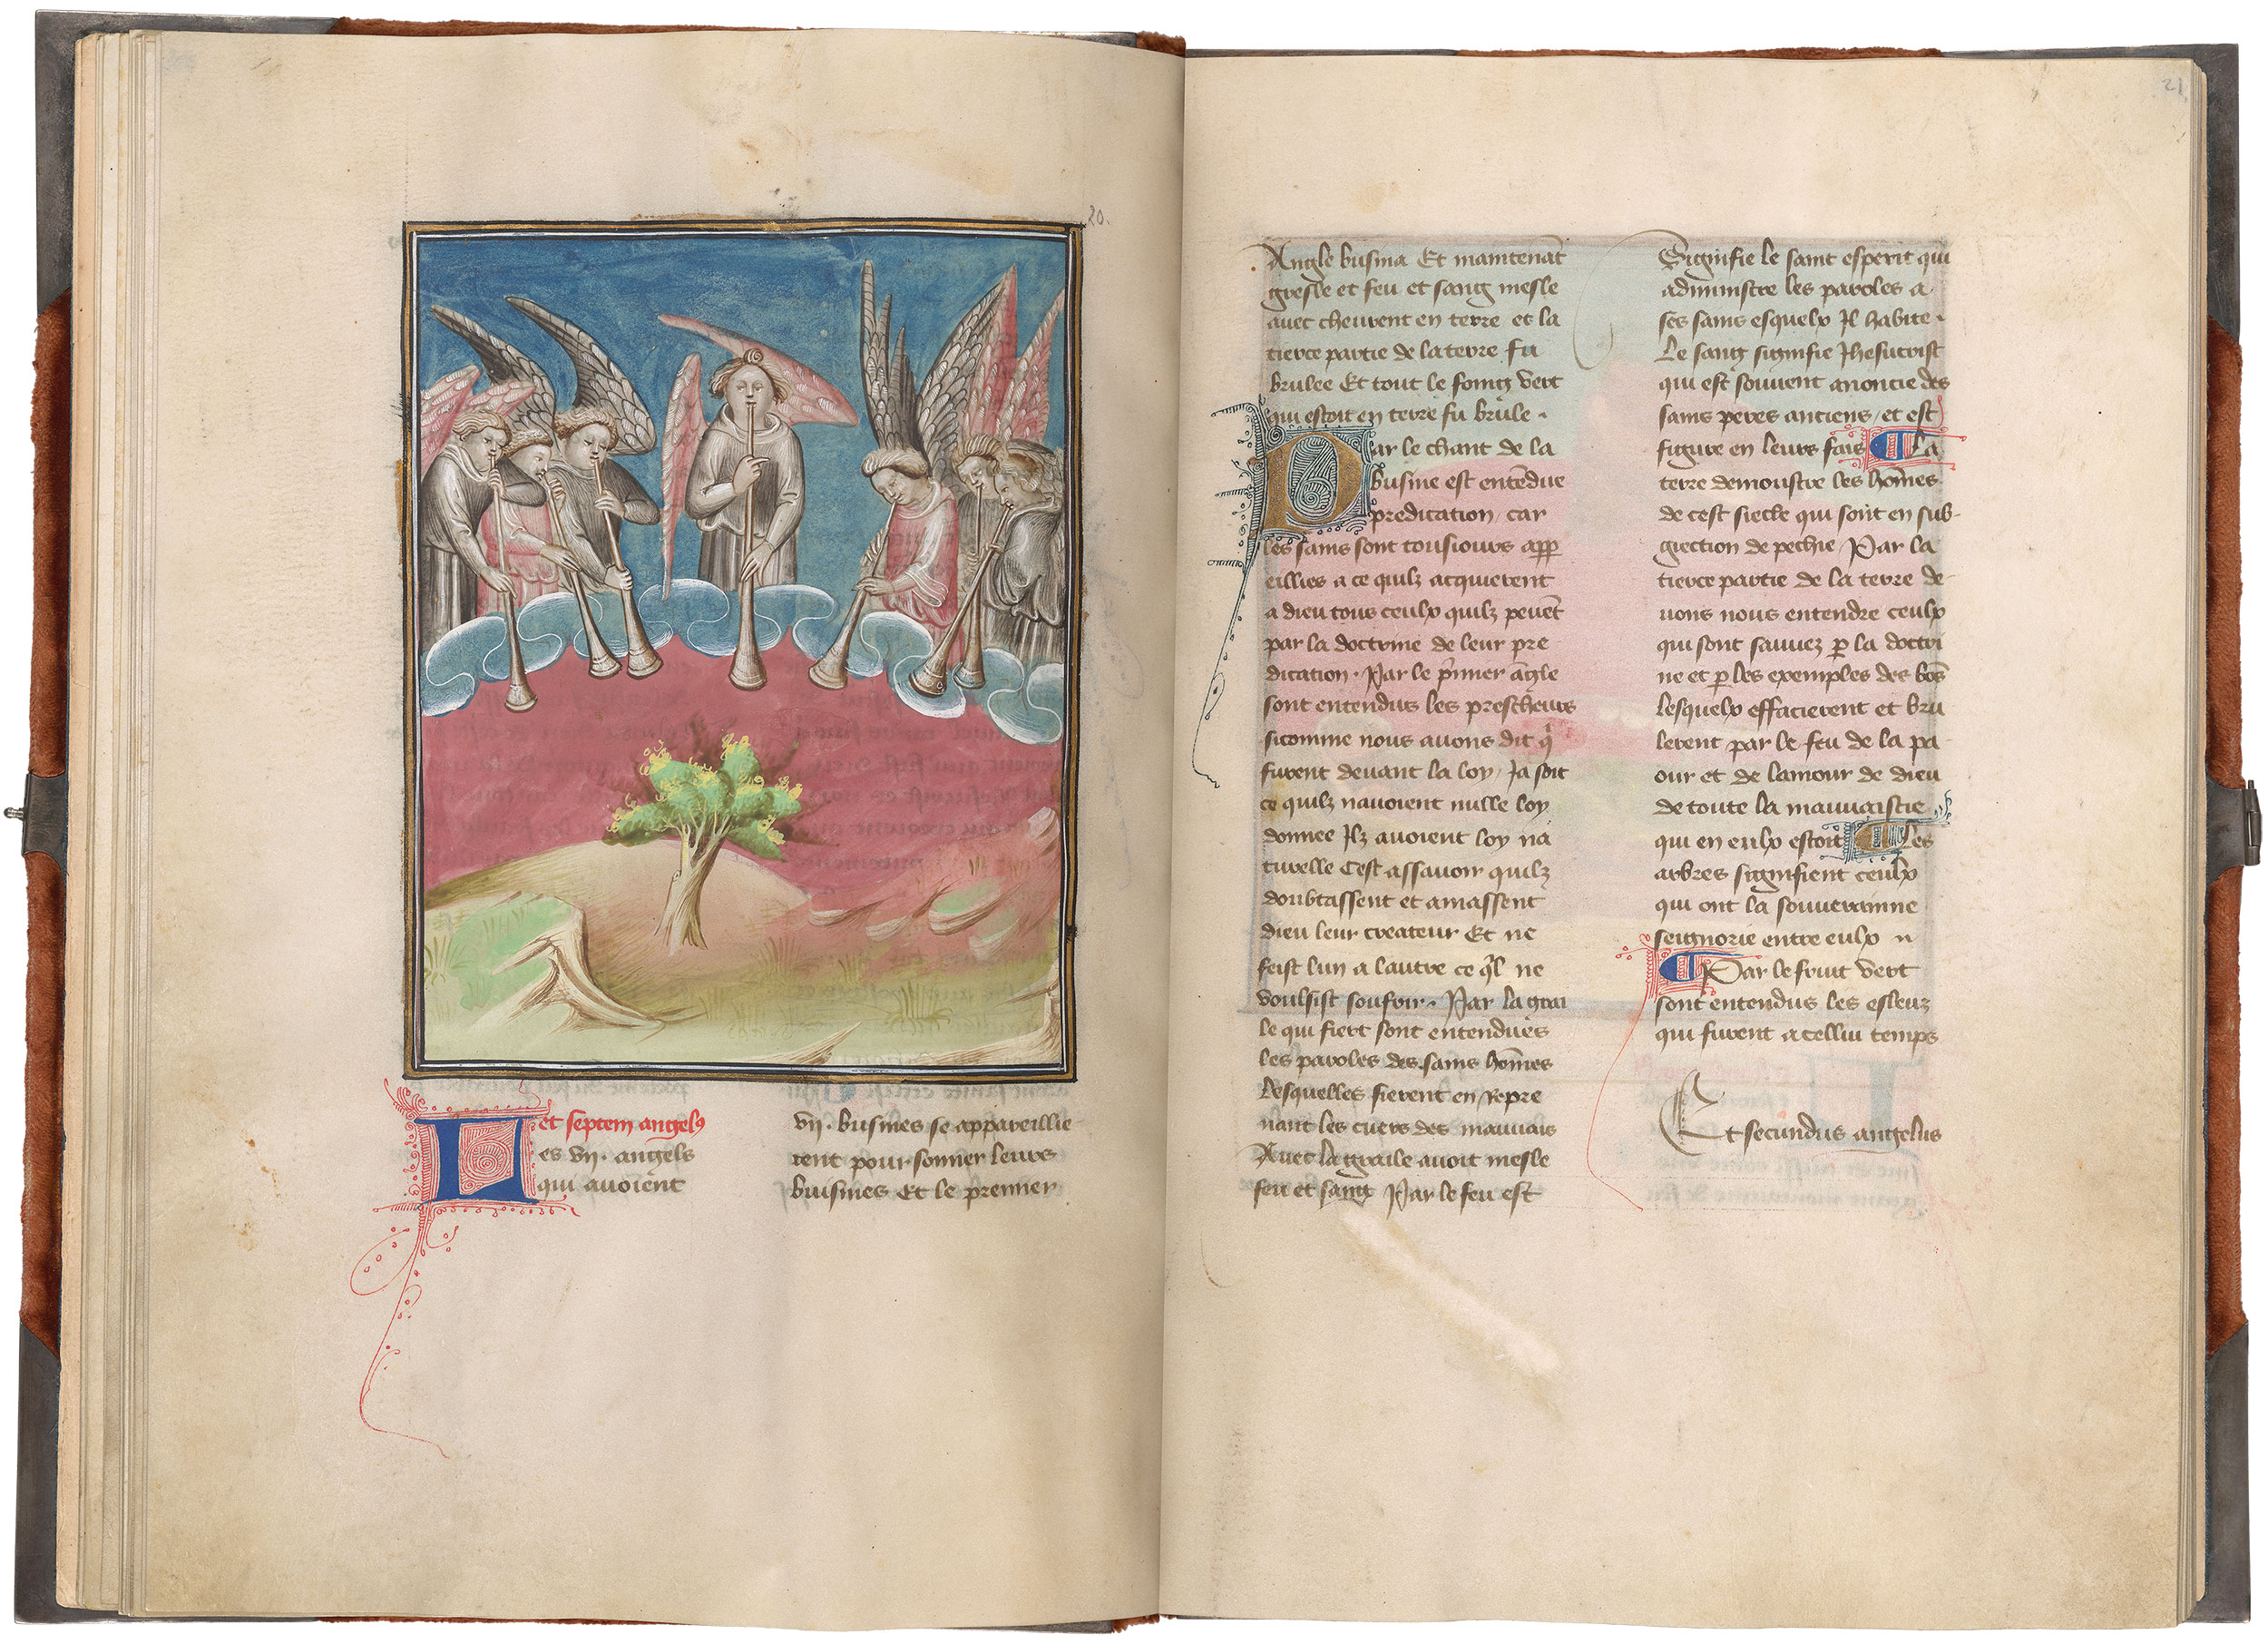 20.
et septem angelꝰ
Les vij. angels
qui auoient
vij. busines se appareillie
rent pour sonner leurs
buisines Et le premier
21
Angle busina Et maintenāt
gresle et feu et sang mesle
auec cheurent en terre et la
tierce partie de la terre fu
brulee Et tout le foing vert
qui estoit en terre fu brule.
Par le chant de la
busine est entēdue
predication, car
les sains sont tousiours app
eillies a ce quilz acquierent
a dieu tous ceulx quilz peuēt
par la doctrine de leur pre
dication. Par le p̄mier āgle
sont entendus les prescheurs
sicomme nous auons dit q̄
furent deuant la loy, Ja soit
ce quilz nauoient nulle loy
donnee Ilz auoient loy na
turelle Cest assauoir quilz
doubtassent et amassent
dieu leur createur Et ne
feist lun a lautre ce q̄l ne
voulsist soufrir. Par la grai
le qui fiert sont entendues
les paroles des sains hōmes
Lesquelles fierent en repre
nant les cuers des mauuais
Auec la graile auoit mesle
feu et sang Par le feu est
Signifie le saint esperit qui
administre les paroles a
ses sains esquelx Il habite.
Le sang signifie Jhesucrist
qui est souuent anoncie des
sains peres anciens, et est
figure en leurs fais ¶ La
terre demoustre les hōmes
de cest siecle qui sont en sub-
giection de pechie Par la
tierce partie de la terre de-
uons nous entendre ceulx
qui sont sauuez p̱ la doctri
ne et p̱ les exemples des bōs
Lesquelx effacierent et bru
lerent par le feu de la pa
our et de lamour de dieu
de toute la mauuaistie
qui en eulx estoit ¶ Les
arbres signifient ceulx
qui ont la souuerainne
seignorie entre eulx
¶ Par le fruit vert
sont entendus les esleuz
qui furent a cellui temps
Et secundus angelus